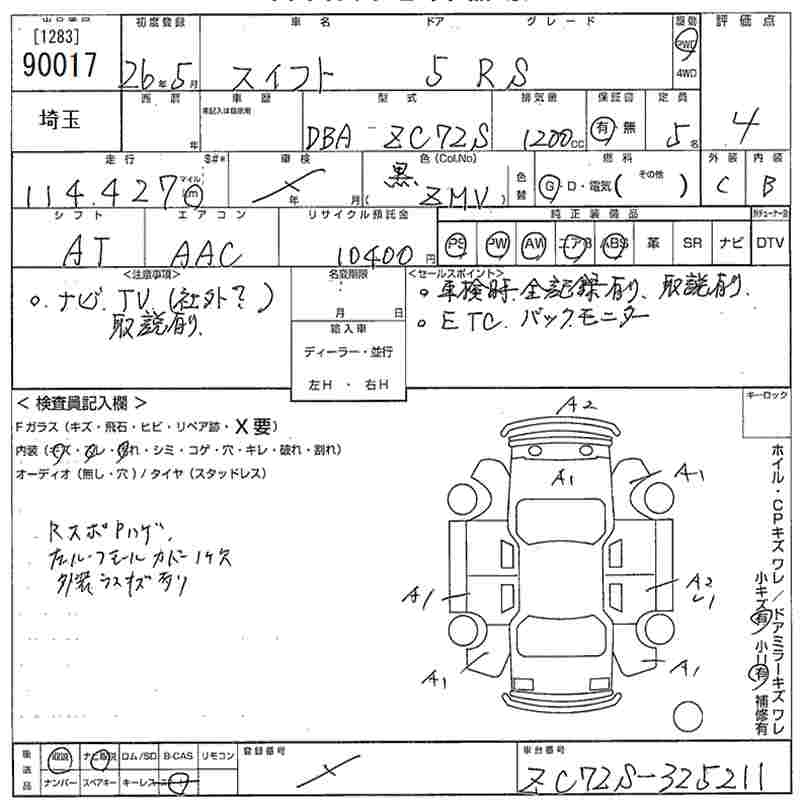 [1283]
90017
初度登録 車名 ドア グレード 駆動 評価点
26年5月 スイフト 5 RS 2WD 4WD
埼玉
西暦 年
車歴
型式 排気量 保証書 定員
DBA ZC72S 1200cc 有・無 5名 4
走行 車検 色(Col.No) 色替 燃料 外装 内装
114,427 マイル km
年 月
黒 ZMV
G・D・電気( その他 )
C B
シフト エアコン リサイクル預託金 純正装備品
AT AAC 10400円 PS PW AW エアB ABS 革 SR ナビ DTV
<注意事項> 名変期限 <セールスポイント>
。ナビ、TV(社外?)
取説有り、
月 日
輸入車
ディーラー・並行
左H ・ 右H
。車検時全記録有り、取説有り、
。ETC、バックモニター
< 検査員記入欄 >
Fガラス(キズ・飛石・ヒビ・リペア跡・X要)
内装(キズ・スレ・汚れ・シミ・コゲ・穴・キレ・破れ・割れ)
オーディオ(無し・穴)/タイヤ(スタッドレス)
RスポPハゲ、
外装ラスキズ有り
キーロック
A2
A1
A1
A1
A2
A1
A1
ホイル・CPキズ ワレ/ドアミラーキズ ワレ
小キズ有 小凹有 補修有
後送品 取説 ナビ取説 ロム/SD B-CAS リモコン
ナンバー スペアキー キーレス
登録番号
車台番号
ZC72S-325211